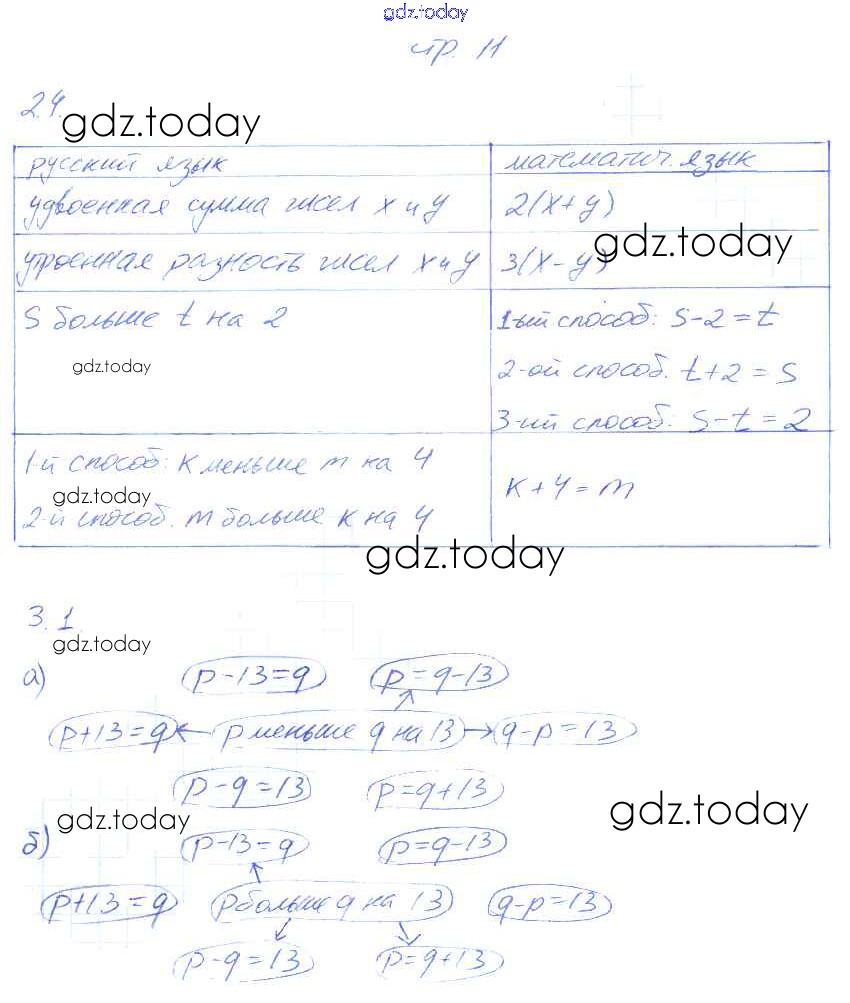 gdz.today
стр. 11
2.4.
gdz.today
русский язык
математич. язык
удвоенная сумма чисел x и y
2(x+y)
gdz.today
утроенная разность чисел x и y
3(x-y)
s больше t на 2
1-ый способ: s-2=t
gdz.today
2-ой способ. t+2=s
3-ий способ: s-t=2
1-й способ: k меньше m на 4
k+4=m
gdz.today
2-й способ. m больше k на 4
gdz.today
3.1.
gdz.today
а)
p-13=q
p=q-13
p+13=q ← p меньше q на 13 → q-p=13
p-q=13
p=q+13
gdz.today
gdz.today
б)
p-13=q
p=q-13
p+13=q
p больше q на 13
q-p=13
p-q=13
p=q+13